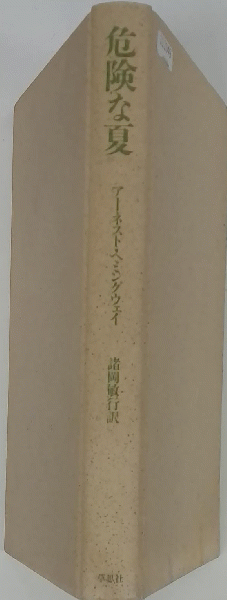 危険な夏
アーネスト・ヘミングウェイ
諸岡敏行訳
草思社